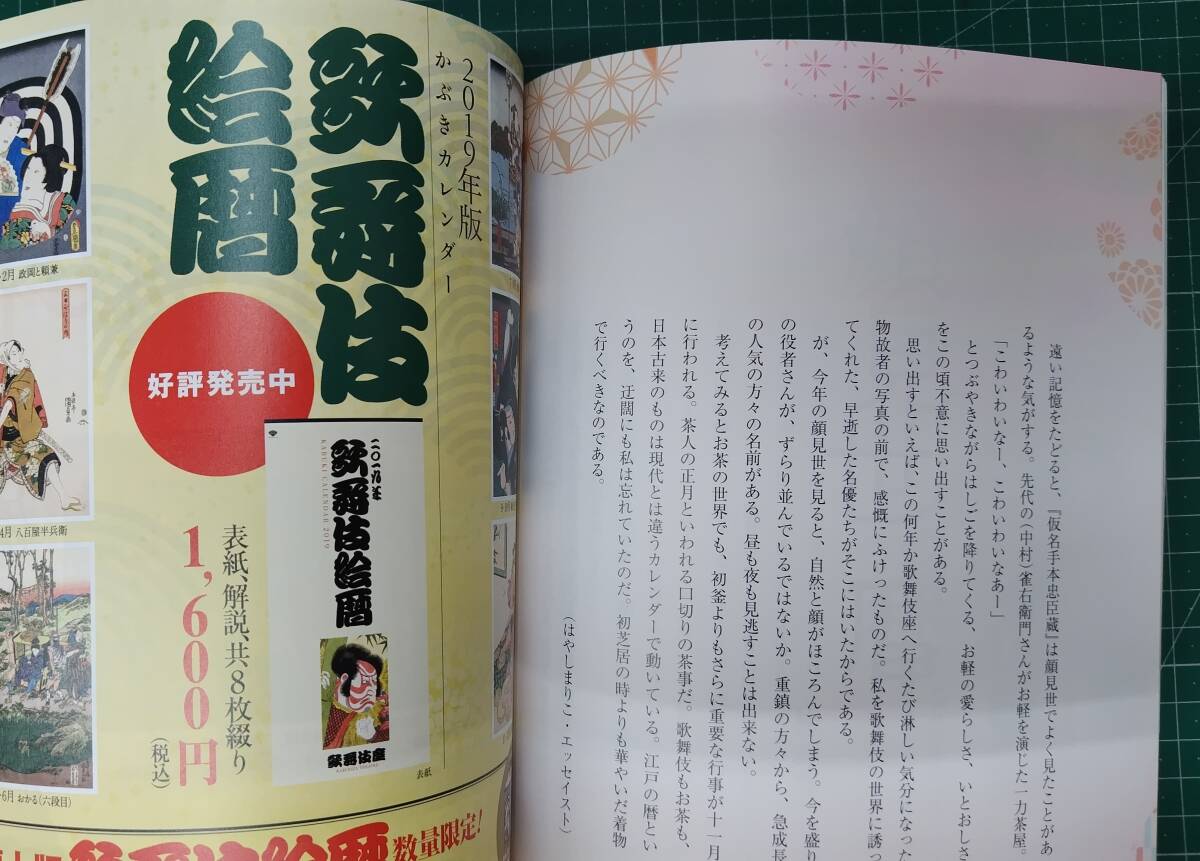 遠い記憶をたどると、『仮名手本忠臣蔵』は顔見世でよく見たことがあ
るような気がする。先代の(中村)雀右衛門さんがお軽を演じた一力茶屋。
「こわいわいなー、こわいわいなあー」
とつぶやきながらはしごを降りてくる、お軽の愛らしさ、いとおしさ
をこの頃不意に思い出すことがある。
思い出すといえば、この何年か歌舞伎座へ行くたび淋しい気分になった
物故者の写真の前で、感慨にふけったものだ。私を歌舞伎の世界に誘っ
てくれた、早逝した名優たちがそこにはいたからである。
が、今年の顔見世を見ると、自然と顔がほころんでしまう。今を盛り
の役者さんが、ずらり並んでいるではないか。重鎮の方々から、急成長
の人気の方々の名前がある。昼も夜も見逃すことは出来ない。
考えてみるとお茶の世界でも、初釜よりもさらに重要な行事が十一月
に行われる。茶人の正月といわれる口切りの茶事だ。歌舞伎もお茶も、
日本古来のものは現代とは違うカレンダーで動いている。江戸の暦とい
うのを、迂闊にも私は忘れていたのだ。初芝居の時よりも華やいだ着物
で行くべきなのである。
(はやしまりこ・エッセイスト)
2019年版
かぶきカレンダー
歌舞伎
絵暦
好評発売中
二〇一九年
歌舞伎絵暦
KABUKI CALENDAR 2019
歌舞伎座
KABUKIZA THEATRE
表紙
表紙、解説、共8枚綴り
1,600円
(税込)
2月 政岡と頼兼
4月 八百屋半兵衛
6月 おかる(六段目)
歌舞伎絵暦
数量限定!